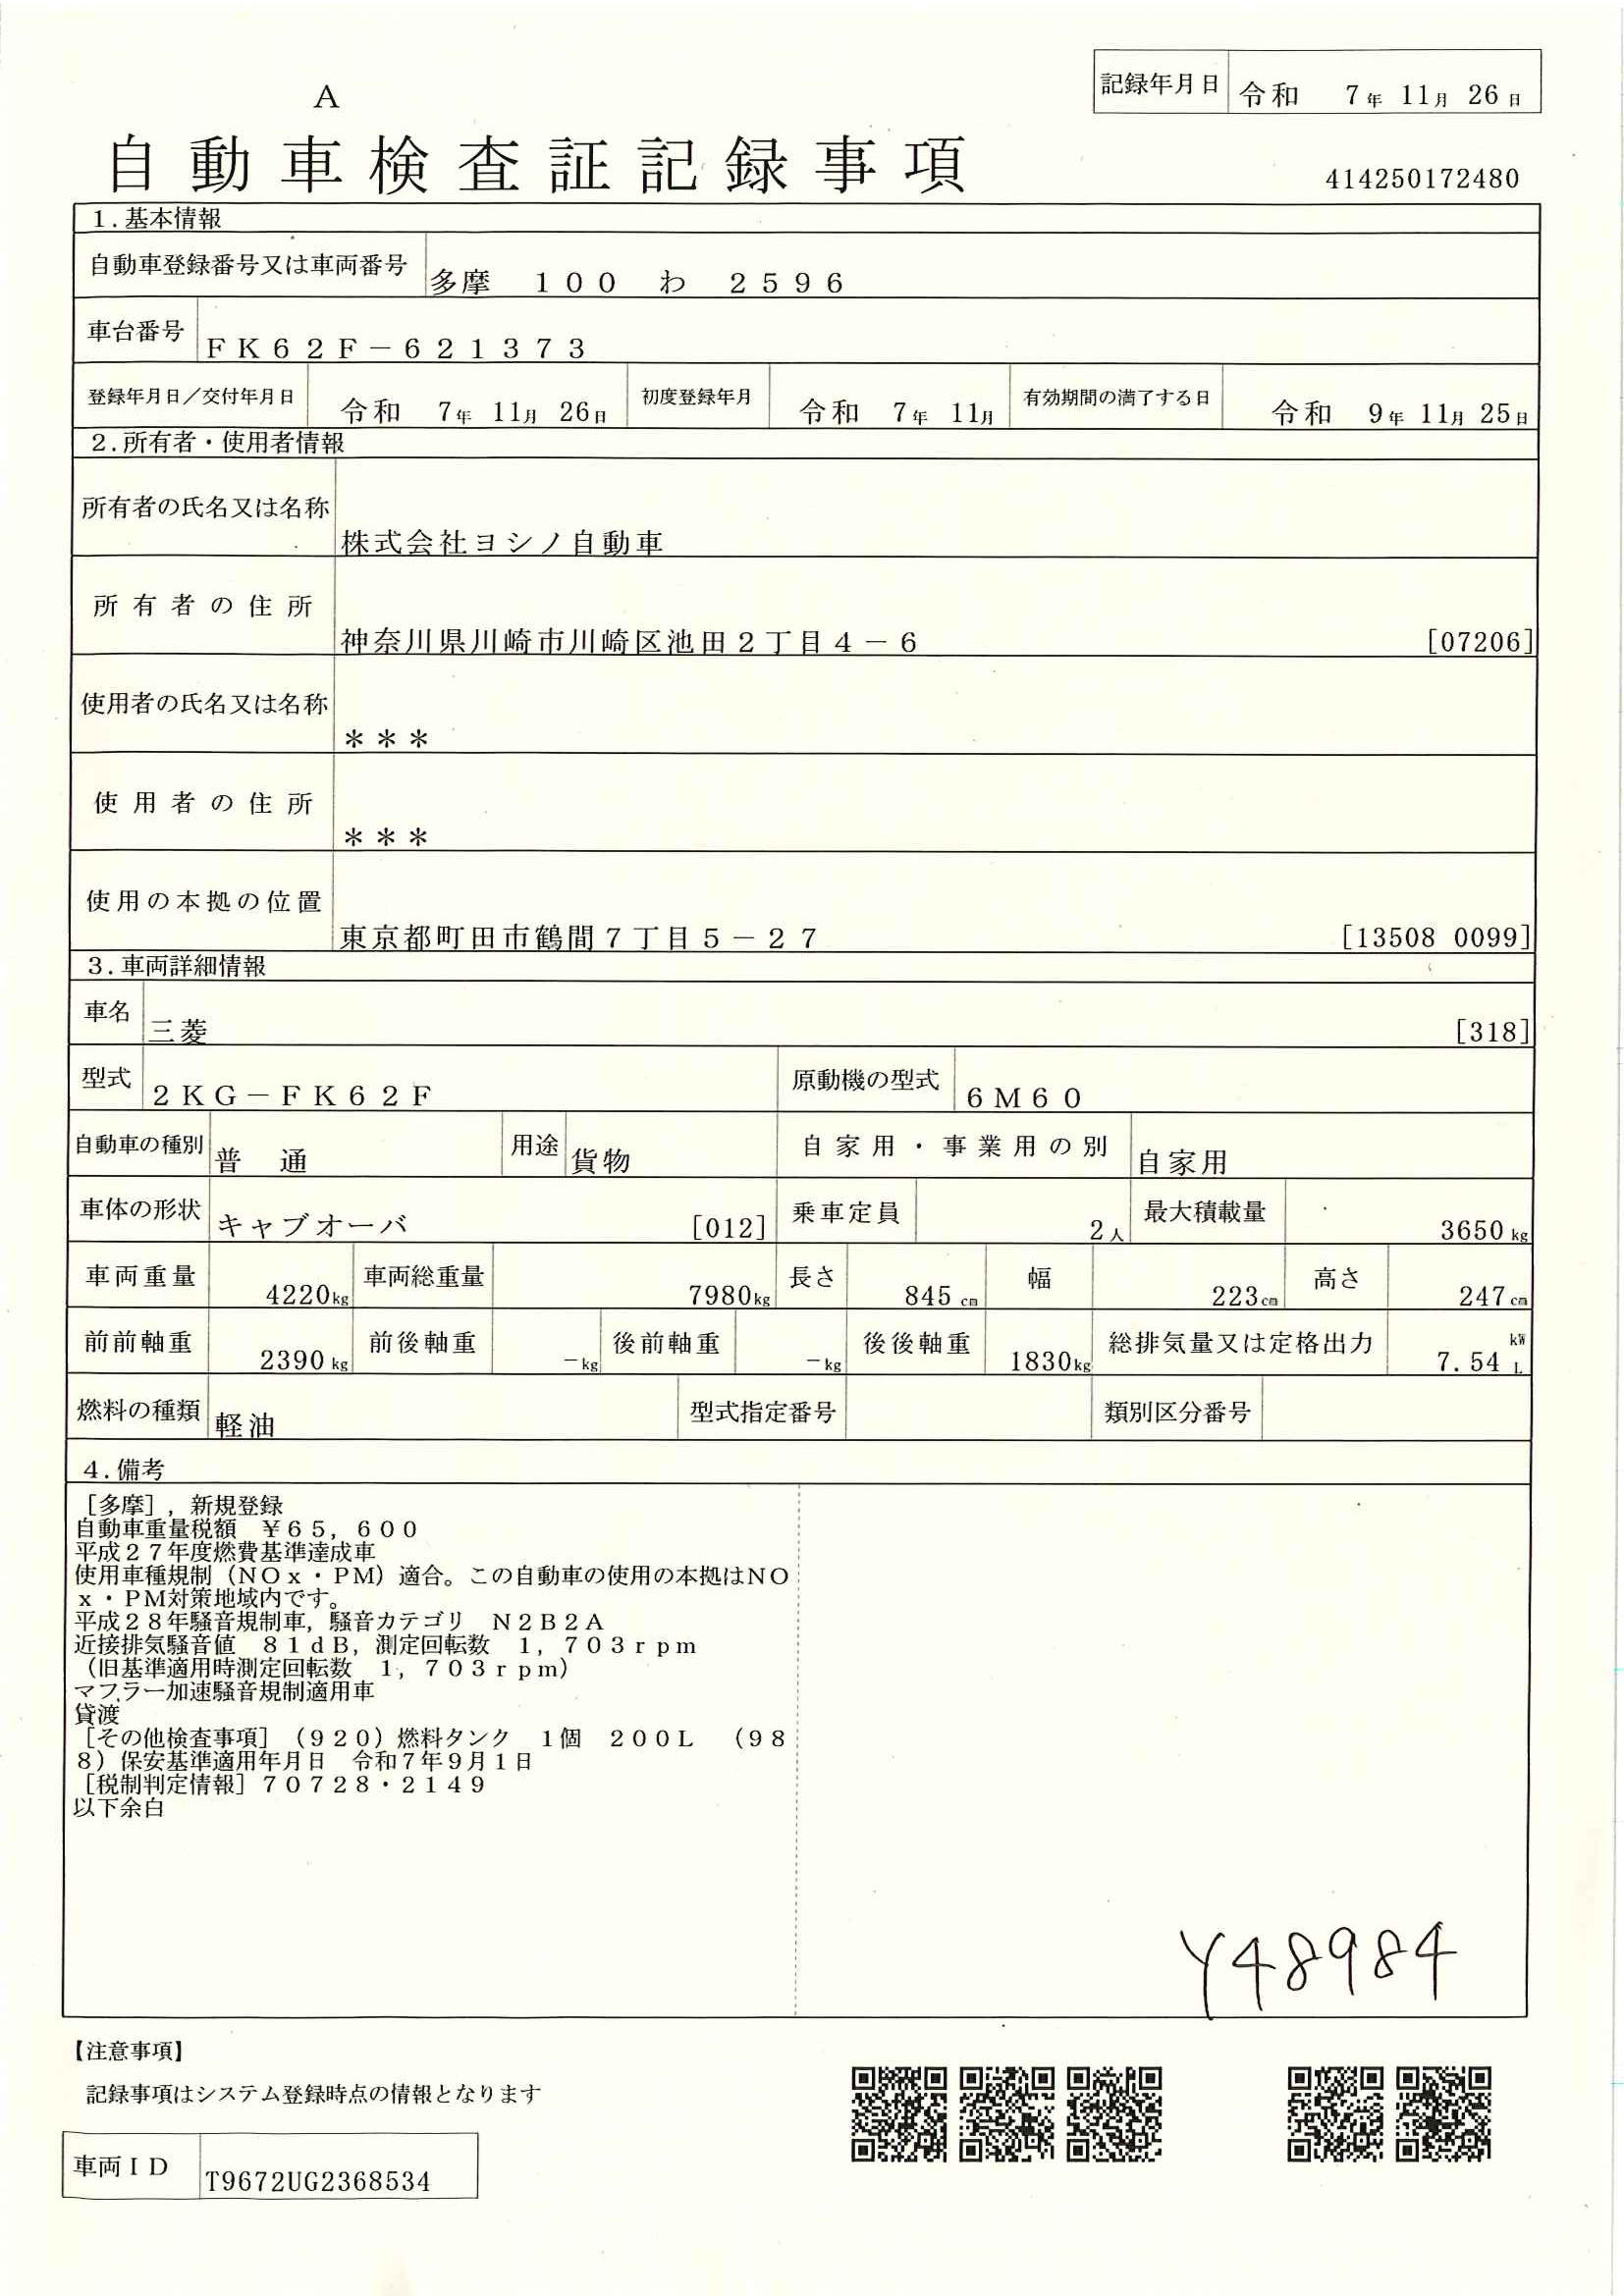 記録年月日 令和 7年 11月 26日
A
自動車検査証記録事項
414250172480
1.基本情報
自動車登録番号又は車両番号 多摩 100 わ 2596
車台番号 FK62F-621373
登録年月日/交付年月日 令和 7年 11月 26日 初度登録年月 令和 7年 11月 有効期間の満了する日 令和 9年 11月 25日
2.所有者・使用者情報
所有者の氏名又は名称 株式会社ヨシノ自動車
所有者の住所 神奈川県川崎市川崎区池田2丁目4-6 [07206]
使用者の氏名又は名称 ***
使用者の住所 ***
使用の本拠の位置 東京都町田市鶴間7丁目5-27 [13508 0099]
3.車両詳細情報
車名 三菱 [318]
型式 2KG-FK62F 原動機の型式 6M60
自動車の種別 普 通 用途 貨物 自家用・事業用の別 自家用
車体の形状 キャブオーバ [012] 乗車定員 2人 最大積載量 3650kg
車両重量 4220kg 車両総重量 7980kg 長さ 845cm 幅 223cm 高さ 247cm
前前軸重 2390kg 前後軸重 -kg 後前軸重 -kg 後後軸重 1830kg 総排気量又は定格出力 7.54 kW L
燃料の種類 軽油 型式指定番号 類別区分番号
4.備考
[多摩],新規登録
自動車重量税額 ¥65,600
平成27年度燃費基準達成車
使用車種規制(NOx・PM)適合。この自動車の使用の本拠はNO
x・PM対策地域内です。
平成28年騒音規制車,騒音カテゴリ N2B2A
近接排気騒音値 81dB,測定回転数 1,703rpm
(旧基準適用時測定回転数 1,703rpm)
マフラー加速騒音規制適用車
貸渡
[その他検査事項](920)燃料タンク 1個 200L (98
8)保安基準適用年月日 令和7年9月1日
[税制判定情報]70728・2149
以下余白
Y48984
【注意事項】
記録事項はシステム登録時点の情報となります
車両ID T9672UG2368534